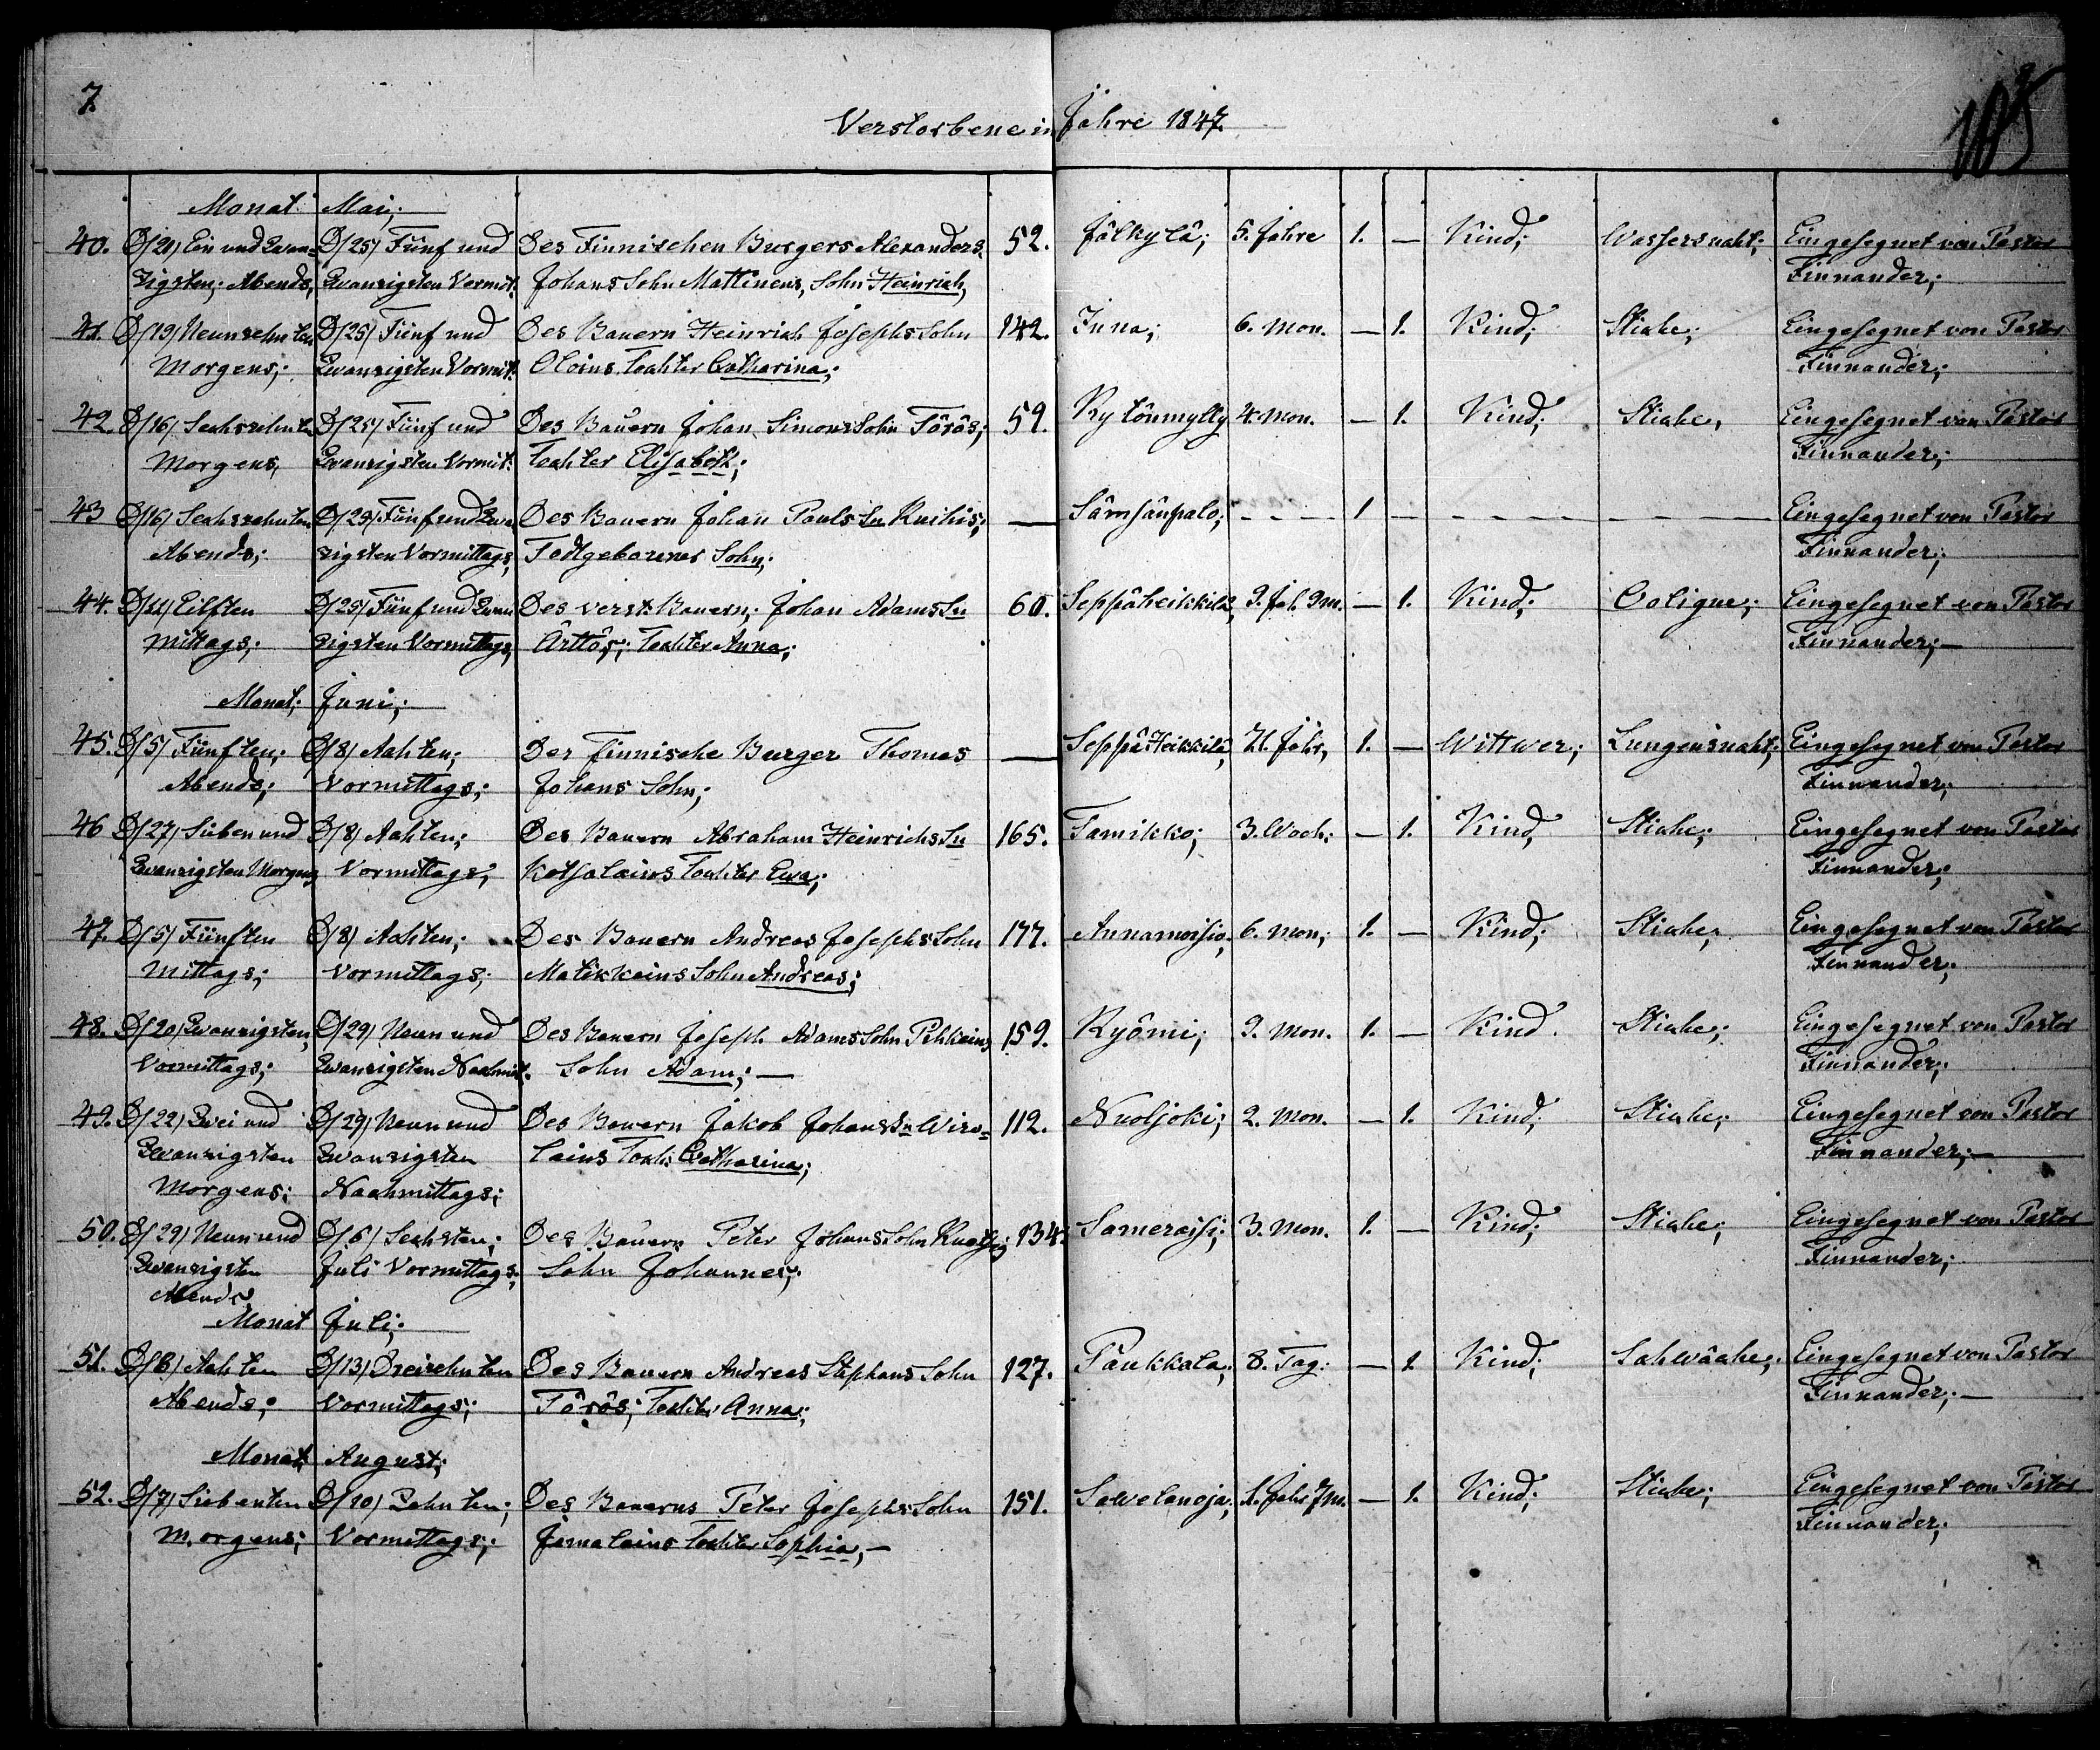 7.
Verstorbene in Jahre 1847.
185
Monat Mai;
40. D/21/ Ein und Zwan= D/25/ Fünf und Des Finnischen Burgers Alexanders 52. Jälkylä; 5. Jahre 1. — Kind; Wassersucht; Eingesegnet von Pastor
zigsten; Abends, Zwanzigsten Vormit. Johans Sohn Mattinens, Sohn Heinrich, Finnander;
41. D/19/ Neunzehnten D/25/ Fünf und Des Bauern Heinrich Josephs Sohn 142. Inna; 6. Mon. — 1. Kind; Stiche; Eingesegnet von Pastor
Morgens; Zwanzigsten Vormit. Oloins Tochter Catharina; Finnander;
42. D/16/ Sechszehnten D/25/ Fünf und Des Bauern Johan Simons Sohn Törös; 59. Kytönmylly 4. Mon. — 1. Kind; Stiche, Eingesegnet von Pastor
Morgens, Zwanzigsten Vormit. Tochter Elisabeth; Finnander;
43 D/16/ Sechszehnten D/25/ Fünf und Zwan Des Bauern Johan Pauls Sn Kuihis; — Sämsänpalo; - - - 1 — - - - - - - Eingesegnet von Pastor
Abends; zigsten Vormittags, Todtgeborener Sohn; Finnander;
44. D/11/ Eilften D/25/ Fünf und Zwan Des verst: Bauern; Johan Adams Sn 60. Seppäheikkilä, 9. Jah. 9 M. — 1. Kind; Coligne; Eingesegnet von Pastor
Mittags; zigsten Vormittags, Ärttös; Tochter Anna; Finnander; —
Monat; Juni;
45. D/5/ Fünften; D/8/ Achten; Der Finnische Burger Thomas — Seppä Heikkilä, 71. Jahr, 1. — Wittwer; Lungensucht; Eingesegnet von Pastor
Abends; Vormittags; Johans Sohn; Finnander;
46 D/27/ Sieben und D/8/ Achten; Des Bauern Abraham Heinrichs Sn 165. Tamikko; 3. Woch: — 1. Kind, Stiche; Eingesegnet von Pastor
Zwanzigsten Morgens Vormittags; Kotsalains Tochter Ewa; Finnander;
47. D/5/ Fünften D/8/ Achten; Des Bauern Andreas Josephs Sohn 177. Annamoisio, 6. Mon; 1. — Kind; Stiche, Eingesegnet von Pastor
Mittags; Vormittags; Matikkains Sohn Andreas; Finnander;
48. D/20/ Zwanzigsten, D/29/ Neun und Des Bauern Joseph Adams Sohn Pehkeins 159. Kyömi; 9. Mon. 1. — Kind. Stiche; Eingesegnet von Pastor
Vormittags; Zwanzigsten Nachmit. Sohn Adam; — Finnander;
49. D/22/ Zwei und D/29/ Neun und Des Bauern Jakob Johans Sn Wiro= 112. Nuoljoki; 2. Mon. — 1. Kind; Stiche; Eingesegnet von Pastor
Zwanzigsten Zwanzigsten lains Toch: Catharina; Finnander; —
Morgens; Nachmittags;
50. D/29/ Neun und D/6/ Sechsten; Des Bauern Peter Johans Sohn 134. Sameroisi; 3. Mon. 1. — Kind; Stiche; Eingesegnet von Pastor
Zwanzigsten Juli Vormittags; Sohn Johannes; Finnander;
Abends
Monat Juli;
51. D/8/ Achten D/13/ Dreizehnten Des Bauern Andreas Stephans Sohn 127. Paukkala; 8. Tag: — 1. Kind; Schwäche; Eingesegnet von Pastor
Abends; Vormittags; Törös; Tochter Anna; Finnander; —
Monat August;
52. D/7/ Siebenten D/10/ Zehnten; Des Bauerns Peter Josephs Sohn 151. Sawelanoja, 1. Jahr 7 M. — 1. Kind; Stiche; Eingesegnet von Pastor
Morgens; Vormittags; Jemalains Tochter Sophia; — Finnander;